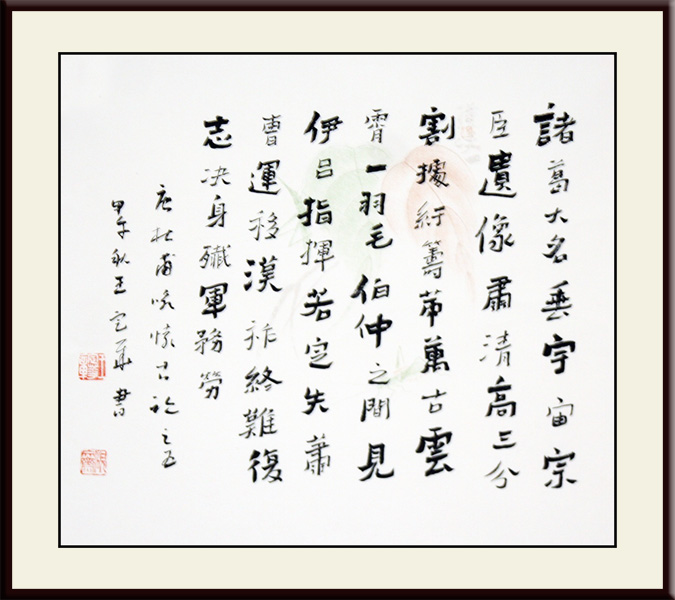 諸葛大名垂宇宙宗
臣遺像肅清高三分
割據紆籌策萬古雲
霄一羽毛伯仲之間見
伊呂指揮若定失蕭
曹運移漢祚終難復
志决身殲軍務勞
唐杜甫咏懷古跡之五
甲午秋王定華書